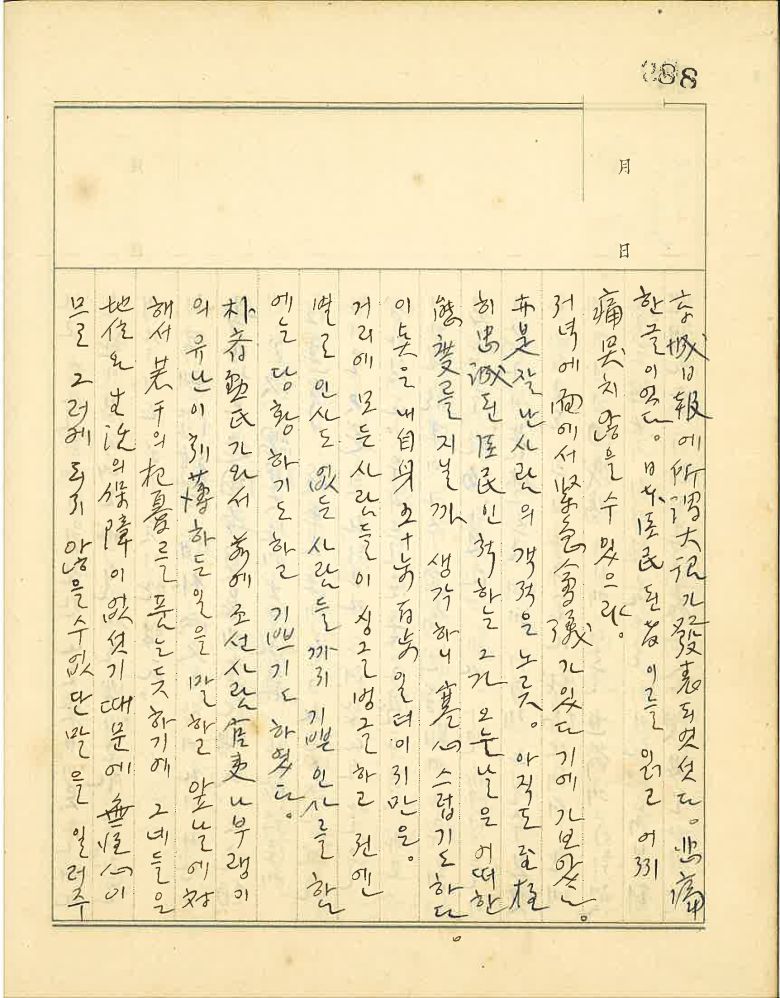 288
月
日
京城日報에 所謂大詔가 發表되엿섯다. 悲痛
한글이엿다. 日本臣民된者 이를 읽고 어찌
痛哭치 않을 수 있으랴.
저녁에 面에서 緊急會議가 있다기에 가보앗슴.
亦是 잘난사람의 객적은 노릇. 아직도 至極
히 忠誠된 臣民인 척 하는 그가 오늘날은 어떠한
態度를 지닐까 생각하니 寒心스럽기도 하다
이 곳은 내自身 五十步百步일터이지만은.
거리에 모든 사람들이 싱글벙글하고 전엔
별로 인사도 없든 사람들까지 기쁜 인사를 할
에는 당황하기도 하고 기쁘기도 하엿다.
朴春勳氏가 와서 前에 조선사람 官吏나부랭이
의 유난이 하든일을 말하고 앞날에 対
해서 若干의 杞憂를 품는 듯 하기에 그네들은
地位와 生活의 保障이 없섯기 때문에 無慈心이
므로 그러케 되지 않을수없단 말을 일러주